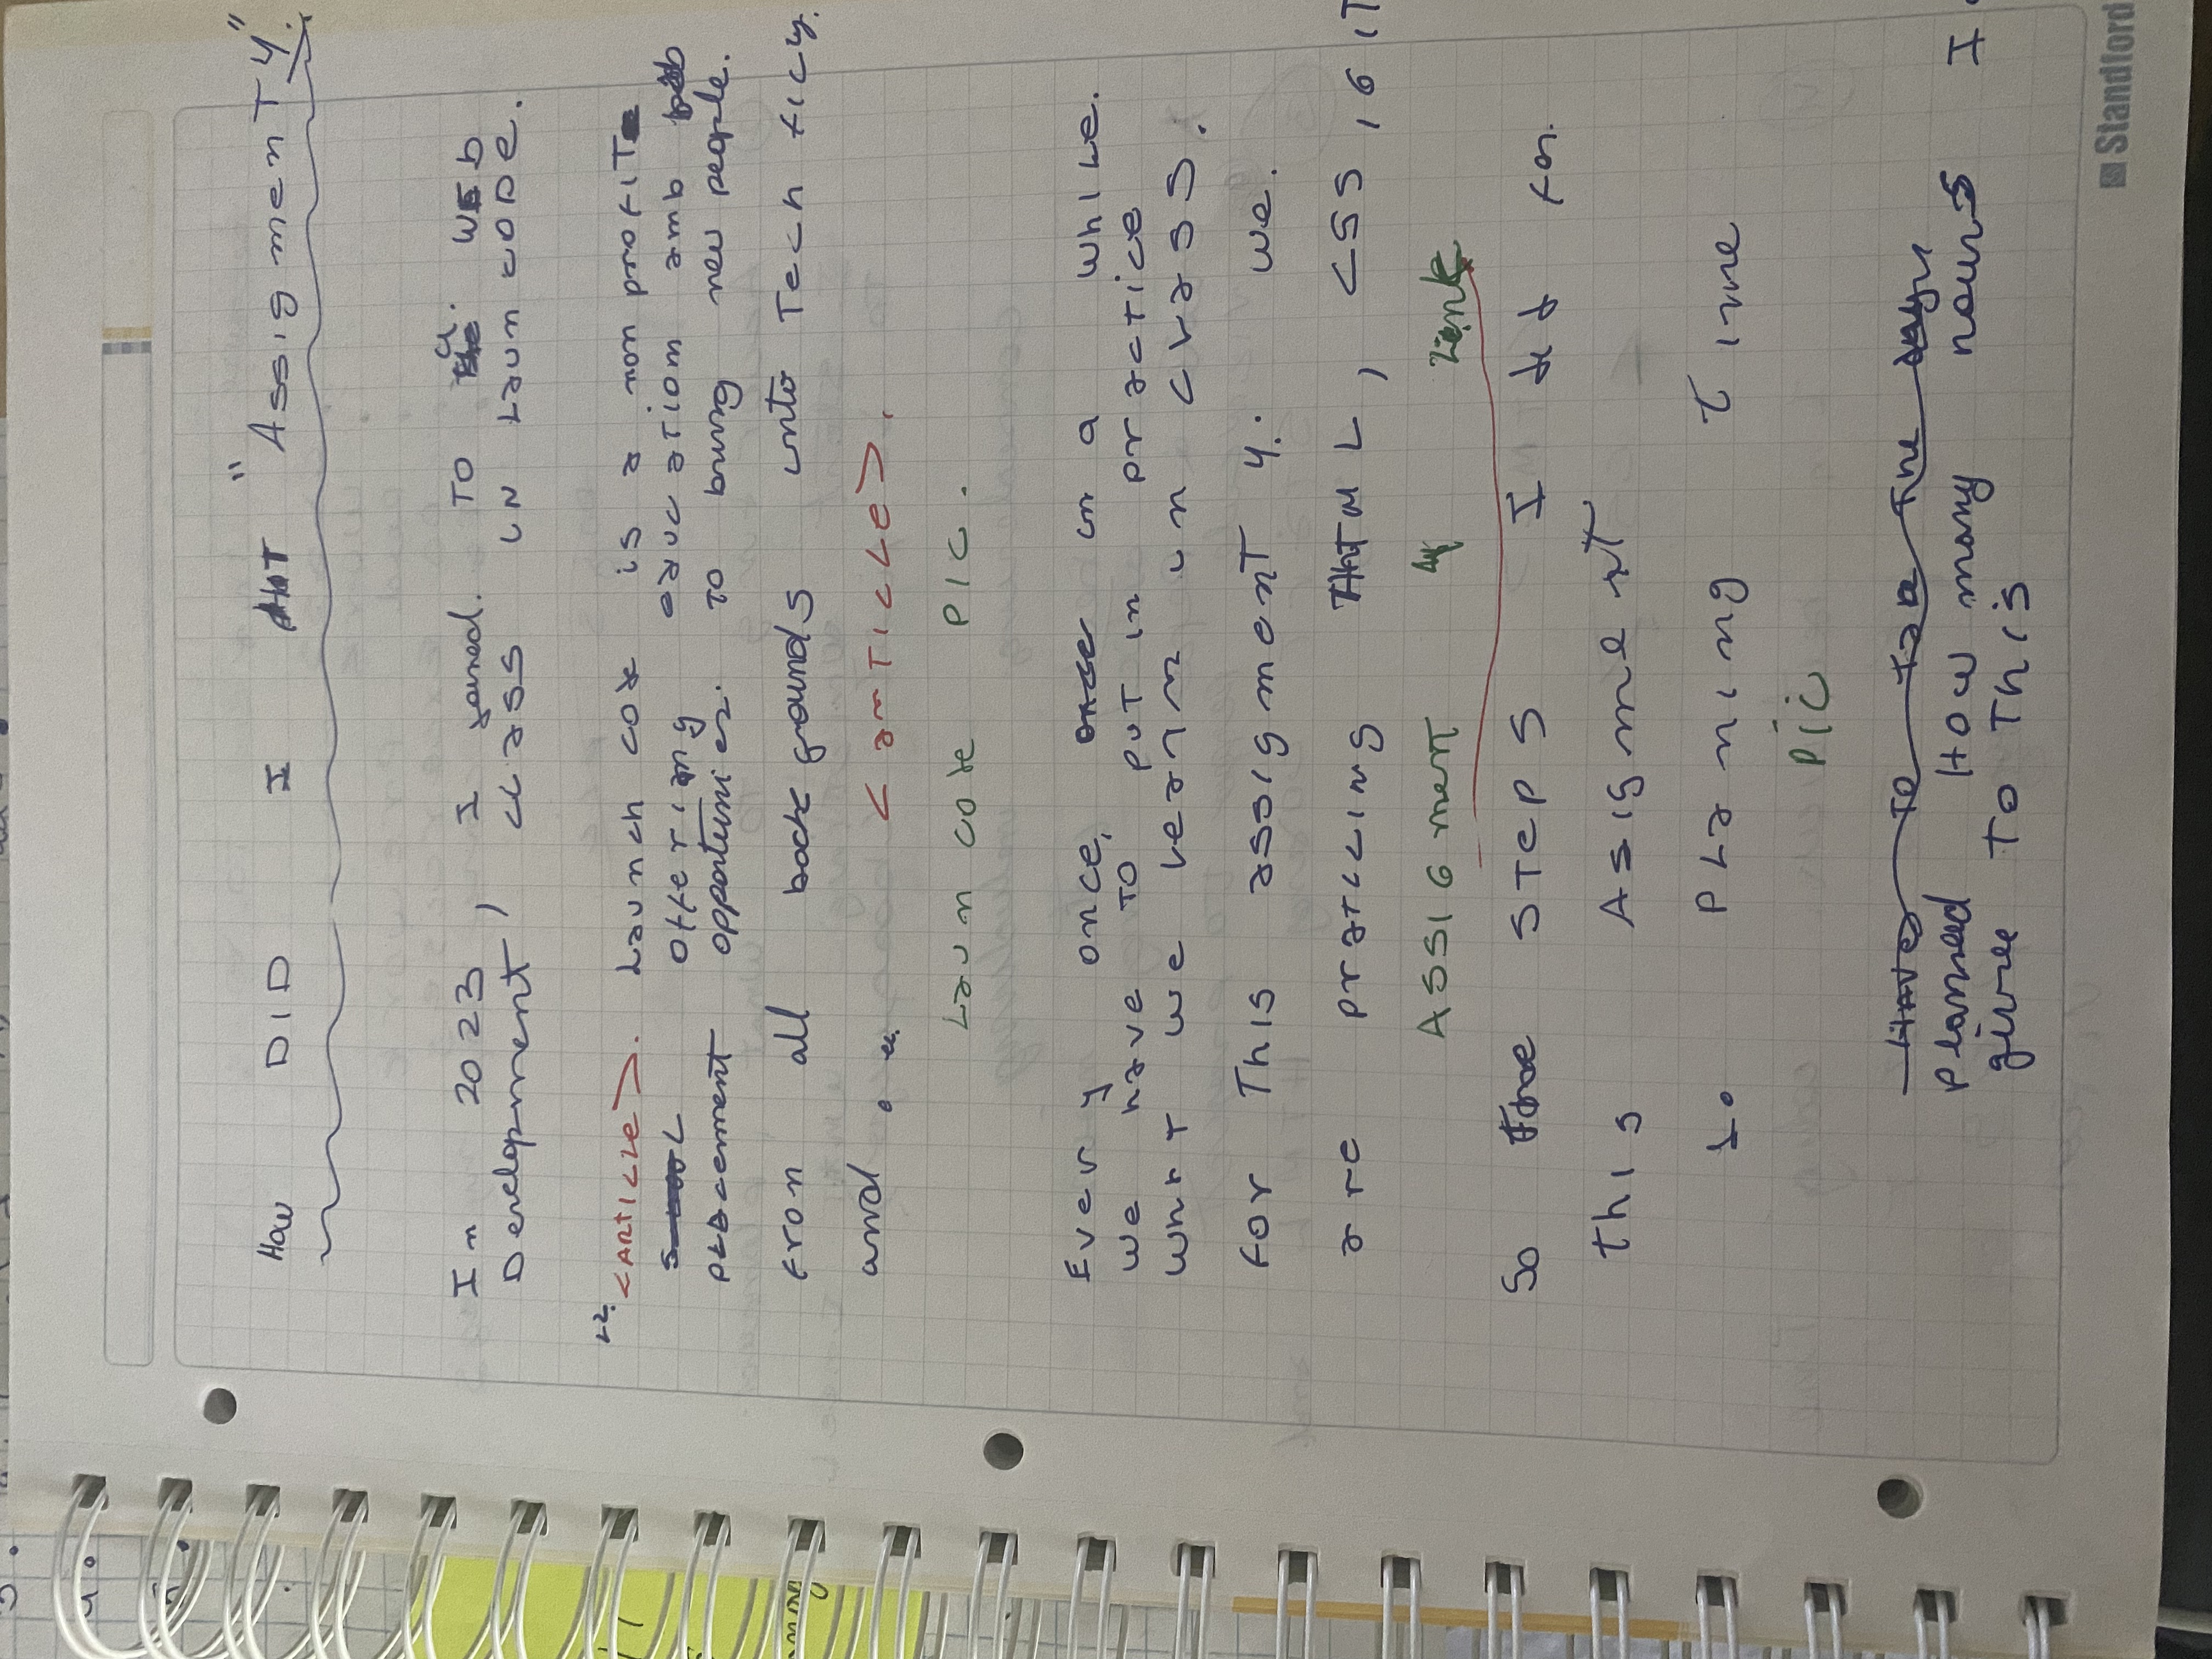 How DID I "Assigment 4."
In 2023, I joined. TO a. WEb
Development class IN LaunCODE.
L2. <ARTICLE>. Launch code is a non profit
offering education amb job
placement opportunies. To bring new people.
fron all back grounds into Tech
and . .. <arTICLe>.
Laun code PIC.
Every once, once in a while.
we have TO PUT in practice
whaT we learn in class.
For This assigment 4. we.
are praticing HTML, CSS, GIT
ASSIGment 4 Link
So The STeps I did for.
this Asigment
1. PLaning Time
Pic
Have To The days
Planned How many hours I.
give To This
Standford